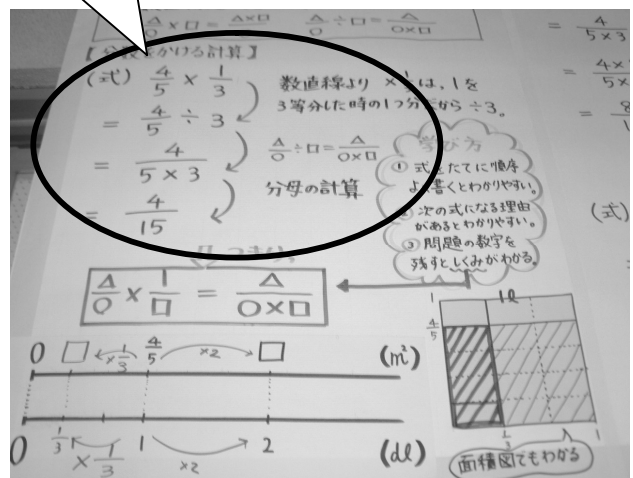 △/○ × □ = △×□/○ △/○ ÷ □ = △/○×□
【分数をかける計算】
(式) 4/5 × 1/3
= 4/5 ÷ 3
= 4/5 × 3
= 4/15
数直線より ×1/3は、1を
3等分した時の1つ分だから ÷3。
△/○ ÷ □ = △/○×□
分母の計算
学び方
① 式をたてに順序
よく書くとわかりやすい。
② 次の式になる理由
があるとわかりやすい。
③ 問題の数字を
残すとしくみがわかる。
△/○ × 1/□ = △/○×□
0 □ ×1/3 4/5 ×2 □ (m²)
0 1/3 ×1/3 1 ×2 2 (dl)
1 1l
4/5
1/3 1
面積図でもわかる
= 4/5×3
(式)